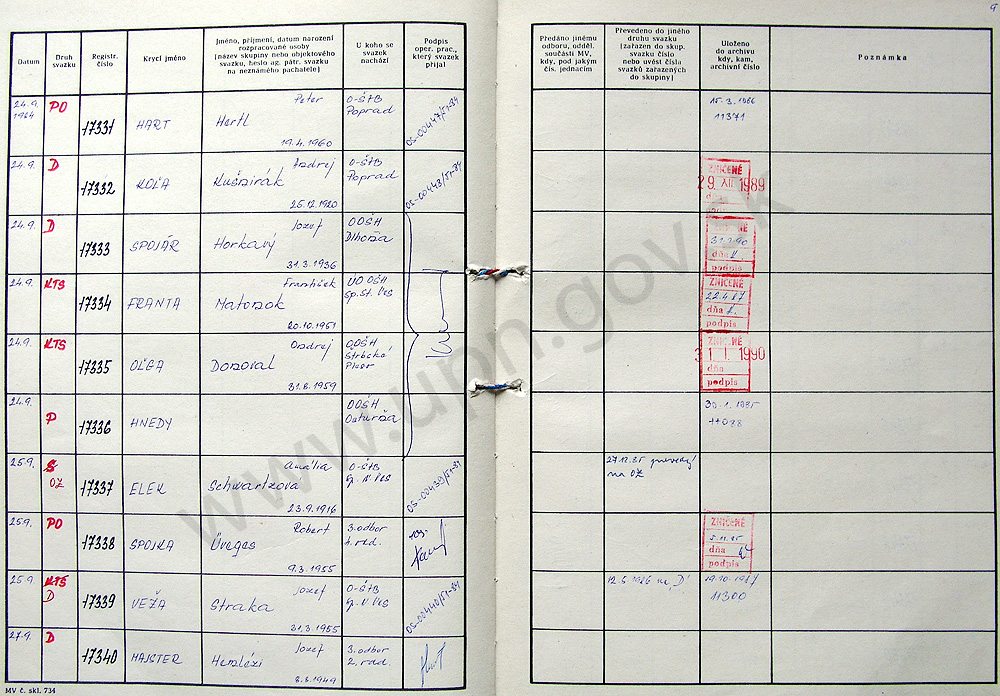 9
Datum
Druh
svazku
Registr.
číslo
Krycí jméno
Jméno, příjmení, datum narození
rozpracované osoby
(název skupiny nebo objektového
svazku, heslo ag. pátr. svazku
na neznámého pachatele)
U koho se
svazek
nachází
Podpis
oper. prac.,
který svazek
přijal
Předáno jinému
odboru, odděl.
součásti MV,
kdy, pod jakým
čís. jednacím
Převedeno do jiného
druhu svazku
(zařazen do skup.
svazku číslo
nebo uvést čísla
svazků zařazených
do skupiny)
Uloženo
do archivu
kdy, kam,
archivní číslo
Poznámka
24.9.
1984
PO
17331
HART
Peter
Hertl
19.4.1960
O-ŠtB
Poprad
OS-00447/51-84
15.3.1986
11371
24.9.
D
17332
KOĽA
Ondrej
Kušnirák
25.12.1920
O-ŠtB
Poprad
OS-00443/51-84
ZNIČENÉ
29. XII. 1989
24.9.
D
17333
SPOJÁR
Jozef
Horkavý
31.3.1936
OOŠH
ZNIČENÉ
dňa
podpis
24.9.
KTS
17334
FRANTA
František
Matonok
20.10.1951
Sp.St. Ves
ZNIČENÉ
22.4.87
dňa
podpis
24.9.
KTS
17335
OĽGA
Ondrej
Donoval
31.8.1959
OOŠH
Štrbské
Pleso
ZNIČENÉ
31. I. 1990
dňa
podpis
24.9.
P
17336
HNEDY
OOŠH
Osturňa
30.1.1985
25.9.
S
OZ
17337
ELEK
Amália
Schwartzova
23.9.1916
O-ŠtB
Sp. N. Ves
OS-00439/51-84
27.12.85
na OZ
25.9.
PO
17338
SPOJKA
Robert
Üveges
9.3.1955
3.odbor
ZNIČENÉ
5.11.85
dňa
podpis
25.9.
KTS
D
17339
VEŽA
Jozef
Straka
31.3.1955
O-ŠtB
Sp. N. Ves
OS-00440/51-84
12.5.1986 na „D"
19.10.1987
11300
27.9.
D
17340
MAJSTER
Jozef
Henzlézi
8.8.1949
3.odbor
2. odd.
MV č. skl. 734
www.upn.gov.sk